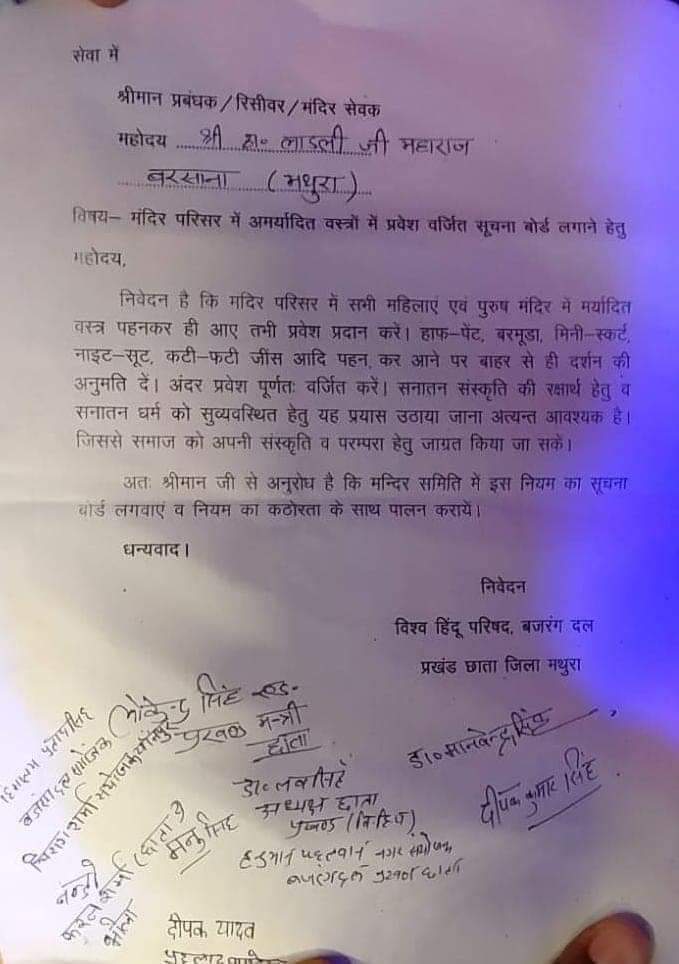 सेवा में
श्रीमान प्रबंधक/रिसीवर/मंदिर सेवक
महोदय श्री लाडली जी महाराज
बरसाना (मथुरा)
विषय– मंदिर परिसर में अमर्यादित वस्त्रों में प्रवेश वर्जित सूचना बोर्ड लगाने हेतु
महोदय,
निवेदन है कि मदिर परिसर में सभी महिलाएं एवं पुरुष मंदिर में मर्यादित
वस्त्र पहनकर ही आए तभी प्रवेश प्रदान करें। हाफ–पेंट, बरमूडा, मिनी–स्कर्ट,
नाइट–सूट, कटी–फटी जींस आदि पहन कर आने पर बाहर से ही दर्शन की
अनुमति दें। अंदर प्रवेश पूर्णतः वर्जित करें। सनातन संस्कृति की रक्षार्थ हेतु व
सनातन धर्म को सुव्यवस्थित हेतु यह प्रयास उठाया जाना अत्यन्त आवश्यक है।
जिससे समाज को अपनी संस्कृति व परम्परा हेतु जाग्रत किया जा सकें।
अतः श्रीमान जी से अनुरोध है कि मन्दिर समिति में इस नियम का सूचना
बोर्ड लगवाएं व नियम का कठोरता के साथ पालन करायें।
धन्यवाद।
निवेदन
विश्व हिंदू परिषद, बजरंग दल
प्रखंड छाता जिला मथुरा
सिंह
प्रखण्ड मन्त्री
छाता
डा० मानवेन्द्र सिंह
दीपक कुमार सिंह
डा. लव सिंह
अध्यक्ष छाता
प्रखण्ड (वि.हि.प)
शर्मा (छाता)
मनु सिंह
भोला
दीपक यादव